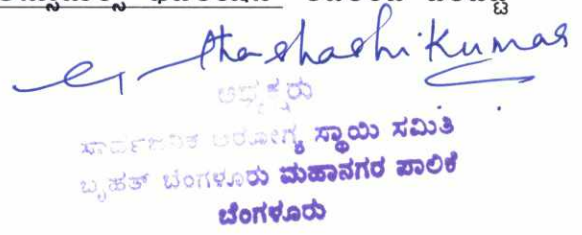 Shashikumar
ಅಧ್ಯಕ್ಷರು
ಸಾರ್ವಜನಿಕ ಆರೋಗ್ಯ ಸ್ಥಾಯಿ ಸಮಿತಿ
ಬೃಹತ್ ಬೆಂಗಳೂರು ಮಹಾನಗರ ಪಾಲಿಕೆ
ಬೆಂಗಳೂರು